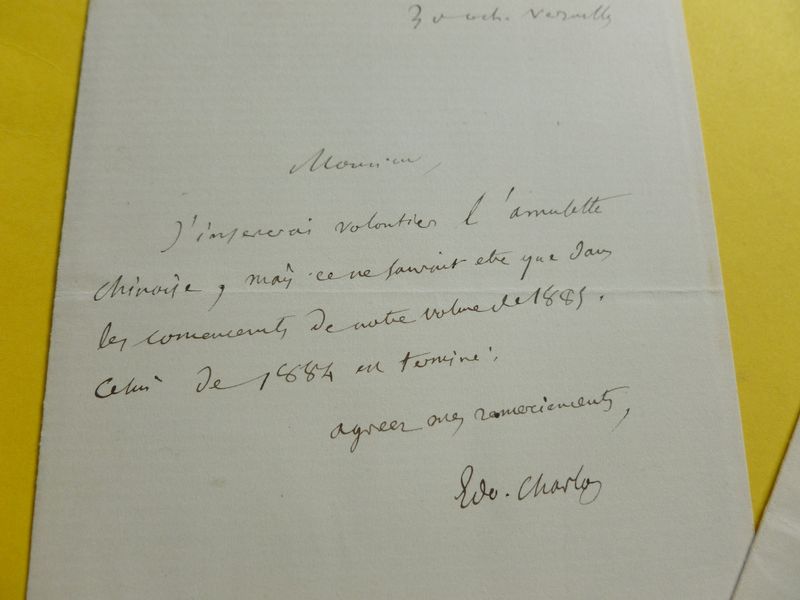 30 oct. Versailles
Monsieur,
J'insererai volontiers l'amulette
chinoise, mais ce ne saurait etre que dans
les comencements de notre volume de 1885.
Celui de 1884 est terminé.
agreez mes remerciements,
Edo. Charton